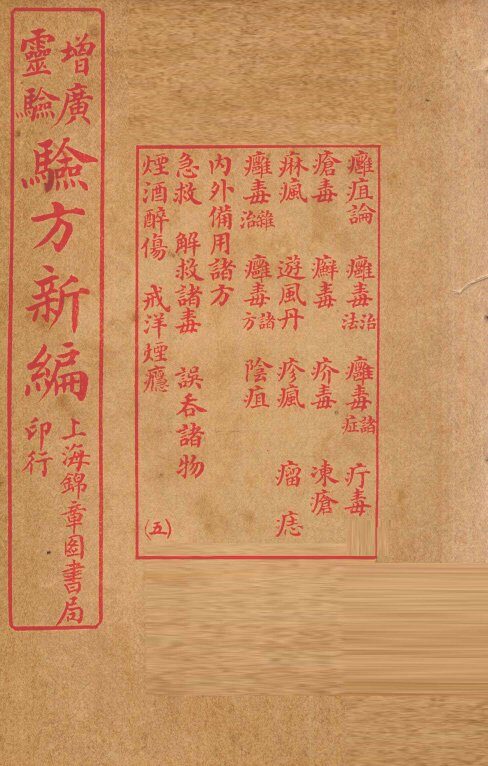 增廣
靈驗
驗方新編
上海錦章圖書局
印行
癰疽論 癰毒治法 癰毒諸症 疔毒
瘡毒 癬毒 疥毒 凍瘡
痳瘋 遊風丹 疹瘋 瘤 痣
癰毒雜治 癰毒諸方 陰疽
內外備用諸方
急救 解救諸毒 誤吞諸物
煙酒醉傷 戒洋煙癮
(五)